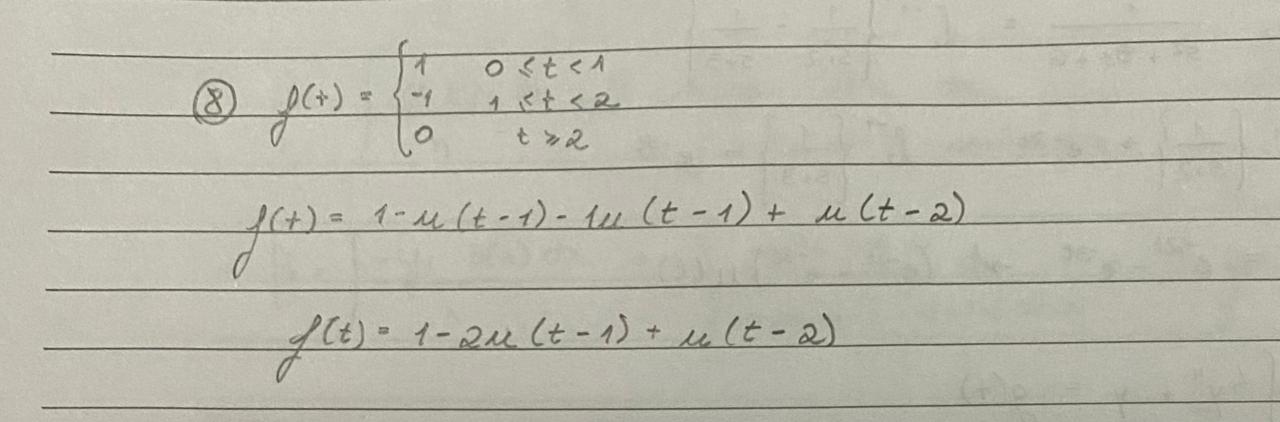 ⑧ f(t) = { 1 0 ≤ t < 1
-1 1 ≤ t < 2
0 t ≥ 2
f(t) = 1 - u(t - 1) - 1u(t - 1) + u(t - 2)
f(t) = 1 - 2u(t - 1) + u(t - 2)